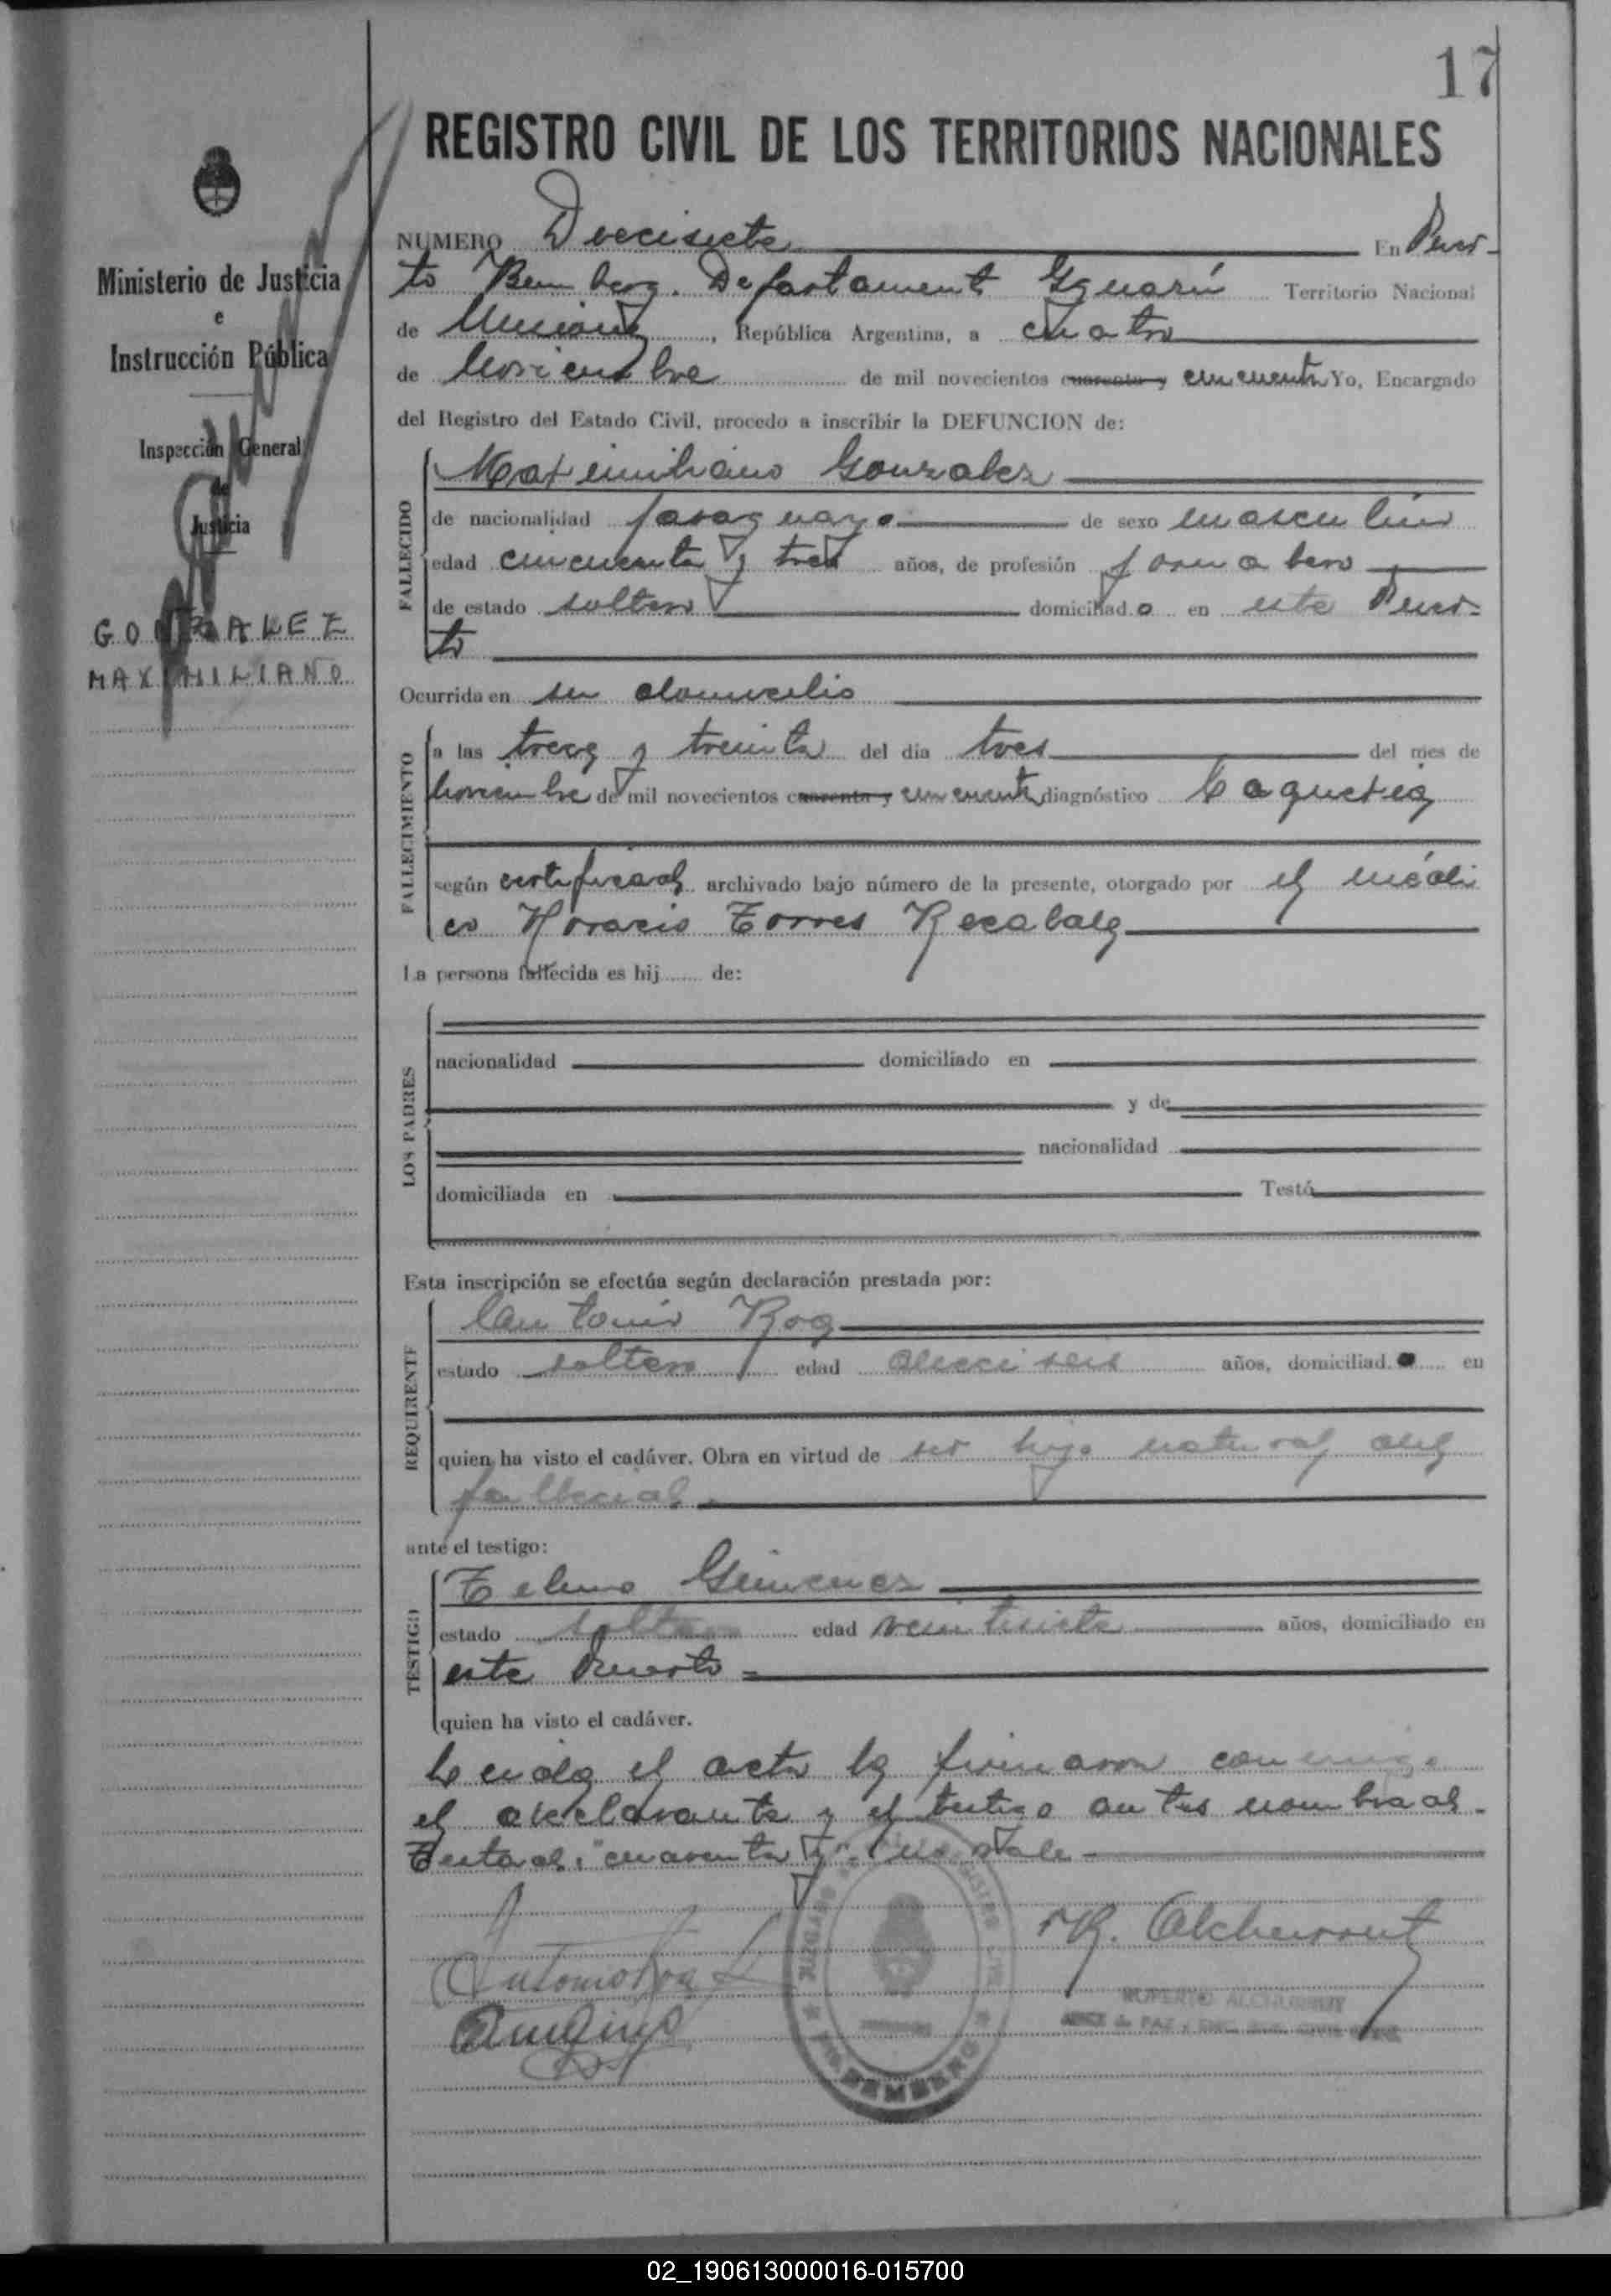 17
REGISTRO CIVIL DE LOS TERRITORIOS NACIONALES
Ministerio de Justicia
e
Instrucción Pública
Inspección General
de
Justicia
GONZALEZ
MAXIMILIANO
NUMERO Diecisiete En Puer-
to Bemberg. Departamento Iguazú Territorio Nacional
de Misiones, República Argentina, a cuatro
de Noviembre de mil novecientos cuarenta y cincuenta Yo, Encargado
del Registro del Estado Civil, procedo a inscribir la DEFUNCION de:
FALLECIDO
Maximiliano Gonzalez
de nacionalidad paraguayo de sexo masculino
edad cincuenta y tres años, de profesión jornalero
de estado soltero domiciliado en este Puer-
to
Ocurrida en su domicilio
FALLECIMIENTO
a las trece y treinta del día tres del mes de
Noviembre de mil novecientos cuarenta y cincuenta diagnóstico Caquexia
según certificado archivado bajo número de la presente, otorgado por el médi
co Horacio Torres
La persona fallecida es hij de:
LOS PADRES
nacionalidad domiciliado en
y de
nacionalidad
domiciliada en Testó
Esta inscripción se efectúa según declaración prestada por:
REQUIRENTE
Antonio Roa
estado soltero edad dieciseis años, domiciliado en
quien ha visto el cadáver. Obra en virtud de ser hijo natural del
fallecido.
ante el testigo:
TESTIGO
Telmo Gimenez
estado soltero edad veintisiete años, domiciliado en
este Puerto =
quien ha visto el cadáver.
Leída el acta la firmaron conmigo
el declarante y el testigo antes nombrado.
Testado: "cuarenta y". No vale
Antonio Roa
R. Alcherrout
JUEZ de PAZ
BEMBERG
02_190613000016-015700